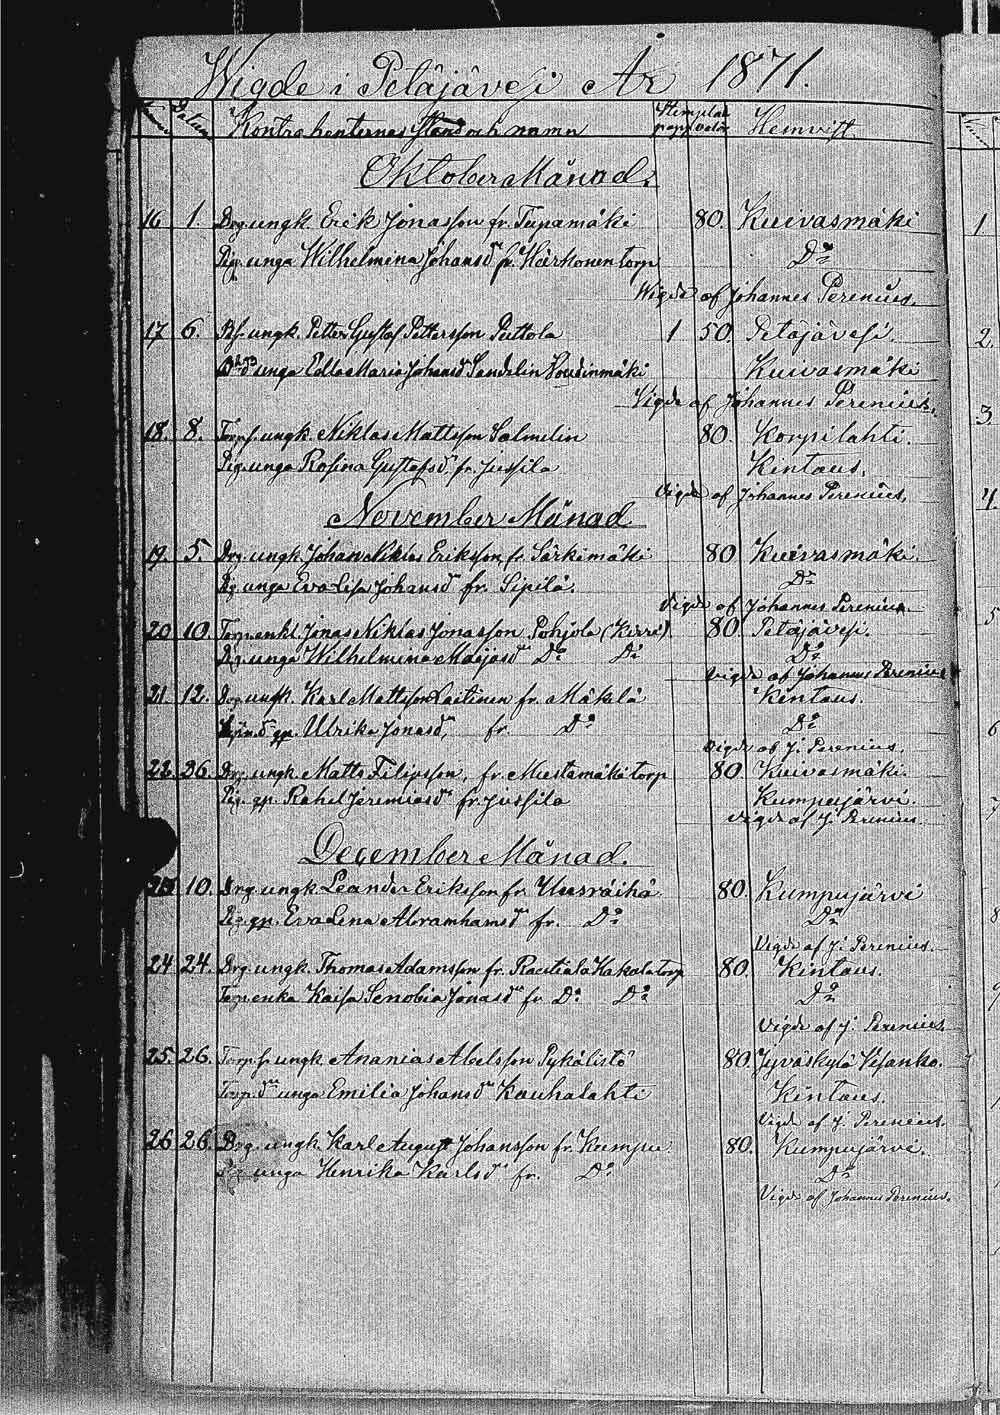 Wigde i Petäjävesi År 1871.
Datum Kontrahenternas stånd och namn Stempladt papp. valör Hemvist
Oktober Månad.
16 1. Drg. ungk. Erik Jonasson fr. Tupamäki 80. Kuivasmäki
Pig. unga Wilhelmina Johansdr fr. Härkonen torp Do
Wigde af Johannes Perenius.
17 6. Bs. ungk. Petter Gustaf Pettersson Puttola 1 50. Petäjävesi.
unga Edla Maria Johansdr Sandelin Kuivasmäki
Vigde af Johannes Perenius.
18. 8. Torp.s. ungk. Niklas Mattsson Salmelin 80. Korpilahti.
Pig. unga Rosina Gustafsdr fr. Jussila Kintaus.
Vigde af Johannes Perenius.
November Månad
19. 5. Drg. ungk. Johan Niklas Eriksson fr. Särkimäki 80 Kuivasmäki.
Pig. unga Eva Lisa Johansdr fr. Sipilä. Do
Vigde af Johannes Perenius.
20 10. Torp. enkl. Jonas Niklas Jonasson Pohjola (Kirri) 80. Petäjävesi.
Pig. unga Wilhelmina Maijasdr Do Do Do
Vigde af Johannes Perenius
21. 12. Drg. ungk. Karl Mattsson Laitinen fr. Mäkelä Kintaus.
gp. Ulrika Jonasdr, fr. Do Do
Vigde af J. Perenius.
22. 26. Drg. ungk. Matts Filipsson, fr. Mustamäki torp 80. Kuivasmäki.
Pig. gp. Rahel Jeremiasdr fr. Jussila Kumpujärvi.
Vigde af J. Perenius.
December Månad.
23 10. Drg. ungk. Leander Eriksson fr. Uusräihä 80. Kumpujärvi
Pig. gp. Eva Lena Abramhamsdr fr. Do Do
Vigde af J. Perenius.
24 24. Drg. ungk. Thomas Adamsson fr. Rautiala Hakala torp 80. Kintaus.
Torp. enka Kaisa Senobia Jonasdr fr. Do Do Do
Vigde af J. Perenius
25. 26. Torp.s. ungk. Ananias Abelsson Pykälistö 80. Jyväskylä Vesanka.
Torp.dr unga Emilia Johansdr Kauhalahti Kintaus.
Vigde af J. Perenius.
26 26. Drg. ungk. Karl August Johansson fr. Kumpu. 80. Kumpujärvi.
Pig. unga Henrika Karlsdr fr. Do Do
Vigde af Johannes Perenius.